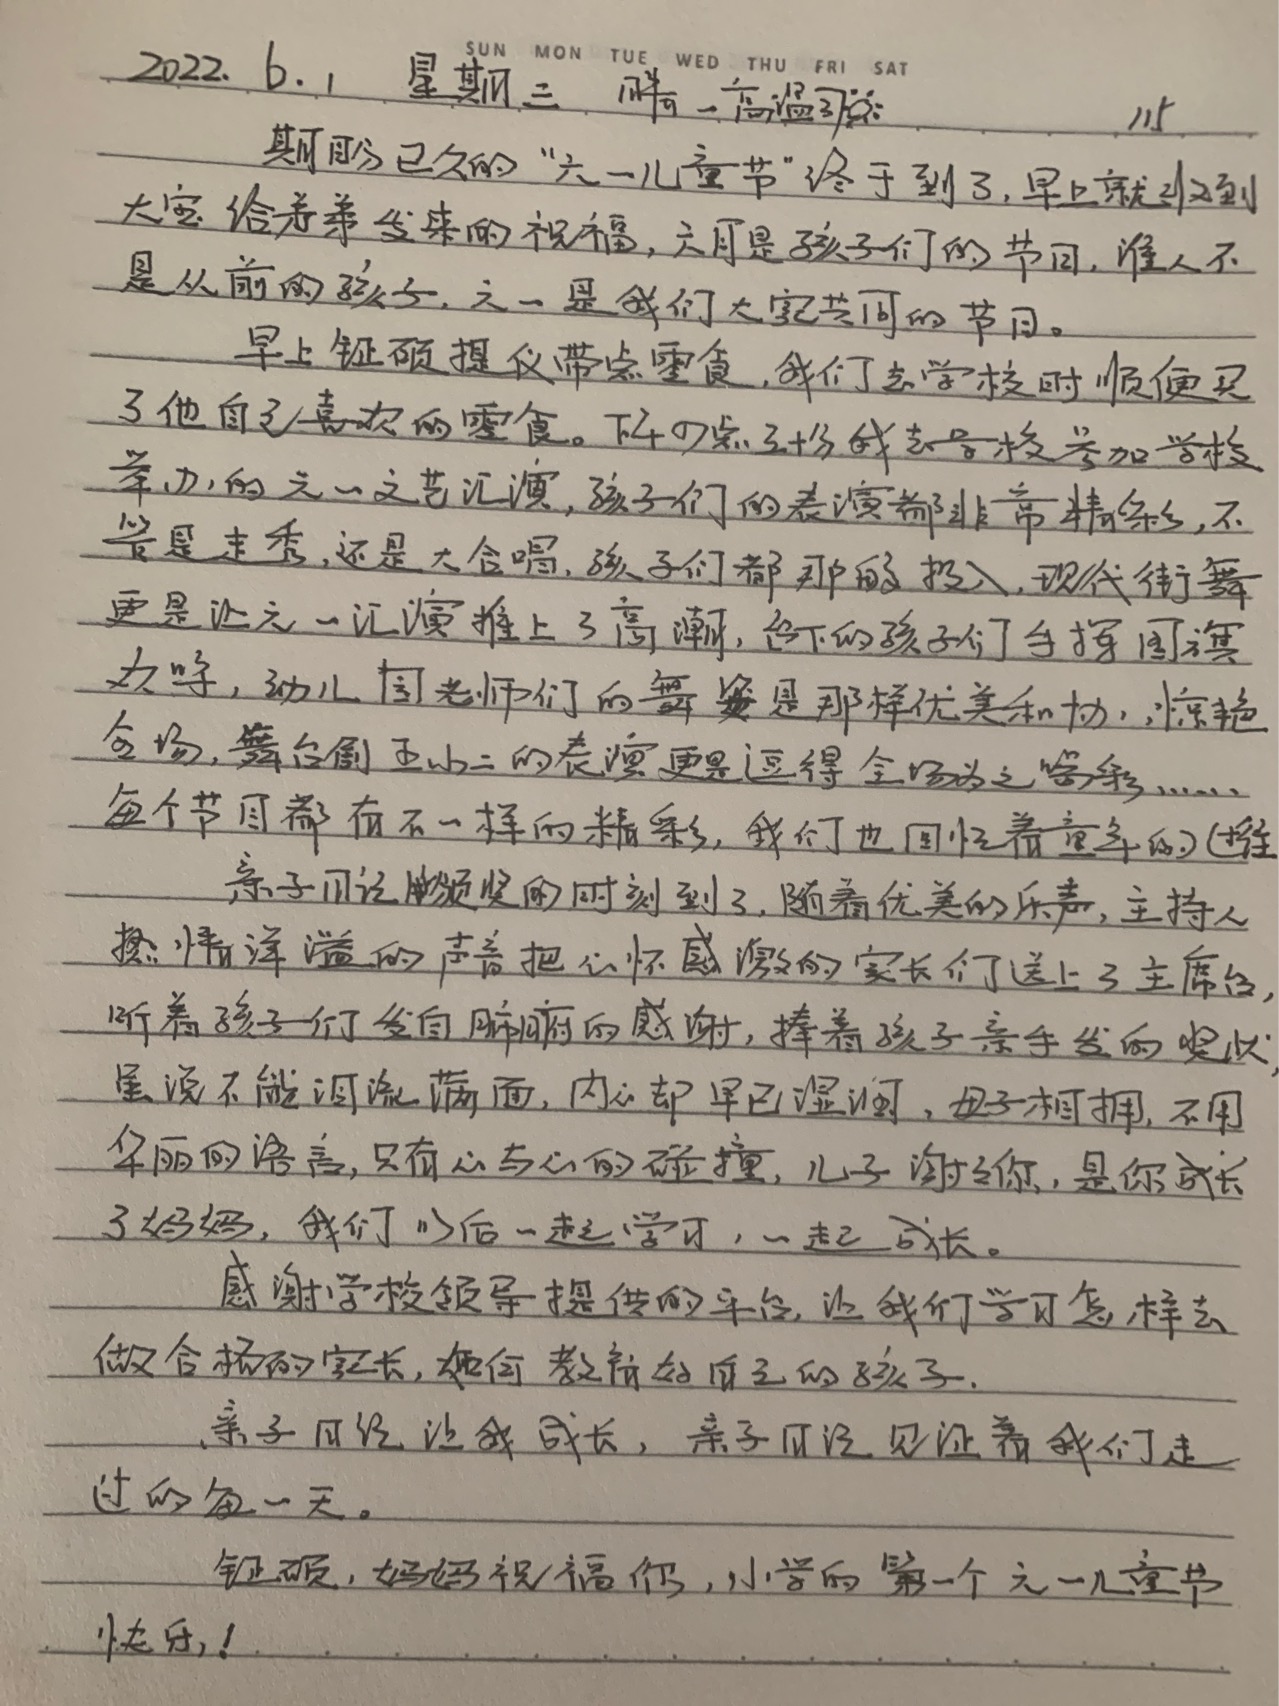 SUN MON TUE WED THU FRI SAT
2022. 6.1 星期三 晴 — 高温 115
期盼已久的“六一儿童节”终于到了,早上就收到
大宝给弟弟发来的祝福,六月是孩子们的节日,谁人不
是从前的孩子,六一是我们大家共同的节日。
早上钲硕提议带点零食,我们去学校时顺便买
了他自己喜欢的零食。下午四点五十分我去学校参加学校
举办的六一文艺汇演,孩子们的表演都非常精彩,不
管是走秀,还是大合唱,孩子们都那的投入,现代街舞
更是让六一汇演推上了高潮,台下的孩子们手挥国旗
欢呼,幼儿园老师们的舞姿是那样优美和协,惊艳
全场,舞台剧王小二的表演更是逗得全场为之喝彩……
每个节目都有不一样的精彩,我们也回忆着童年的过往
亲子日记颁奖的时刻到了,随着优美的乐声,主持人
热情洋溢的声音把心怀感激的家长们送上了主席台,
听着孩子们发自肺腑的感谢,捧着孩子亲手发的奖状,
虽说不能泪流满面,内心却早已湿润,母子相拥,不用
华丽的语言,只有心与心的碰撞,儿子谢谢你,是你成长
了妈妈,我们以后一起学习,一起成长。
感谢学校领导提供的平台,让我们学习怎样去
做合格的家长,如何教育好自己的孩子.
亲子日记让我成长,亲子日记见证着我们走
过的每一天。
钲硕,妈妈祝福你,小学的第一个六一儿童节
快乐!